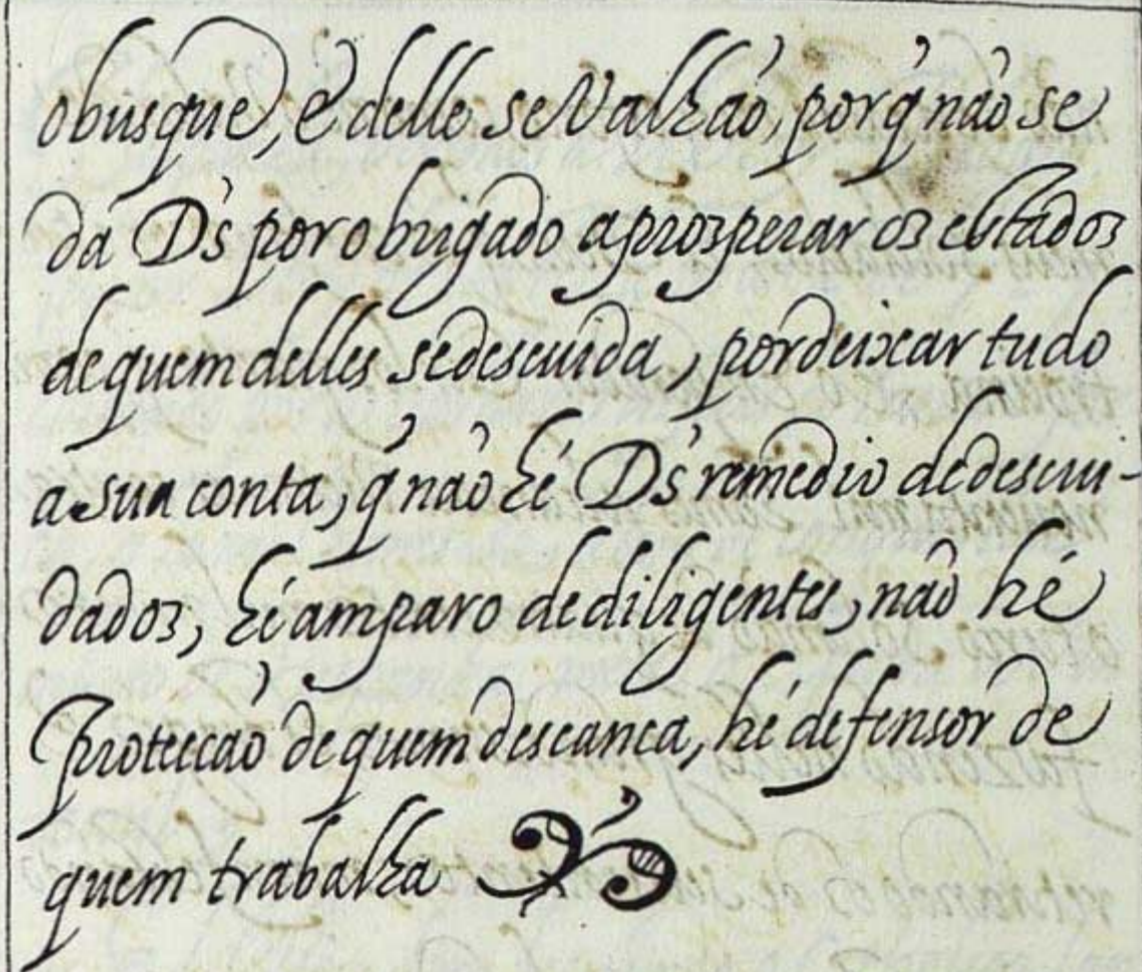 o busque, e delle se Valhaõ, porq̃ naõ se
dá D's por obrigado a prosperar os estados
de quem delles se descuida, por deixar tudo
a sua conta, q̃ naõ hé D's remedio de descui-
dados, hé amparo de diligentes, naõ hé
Proteccaõ de quem descanca, hé defensor de
quem trabalha